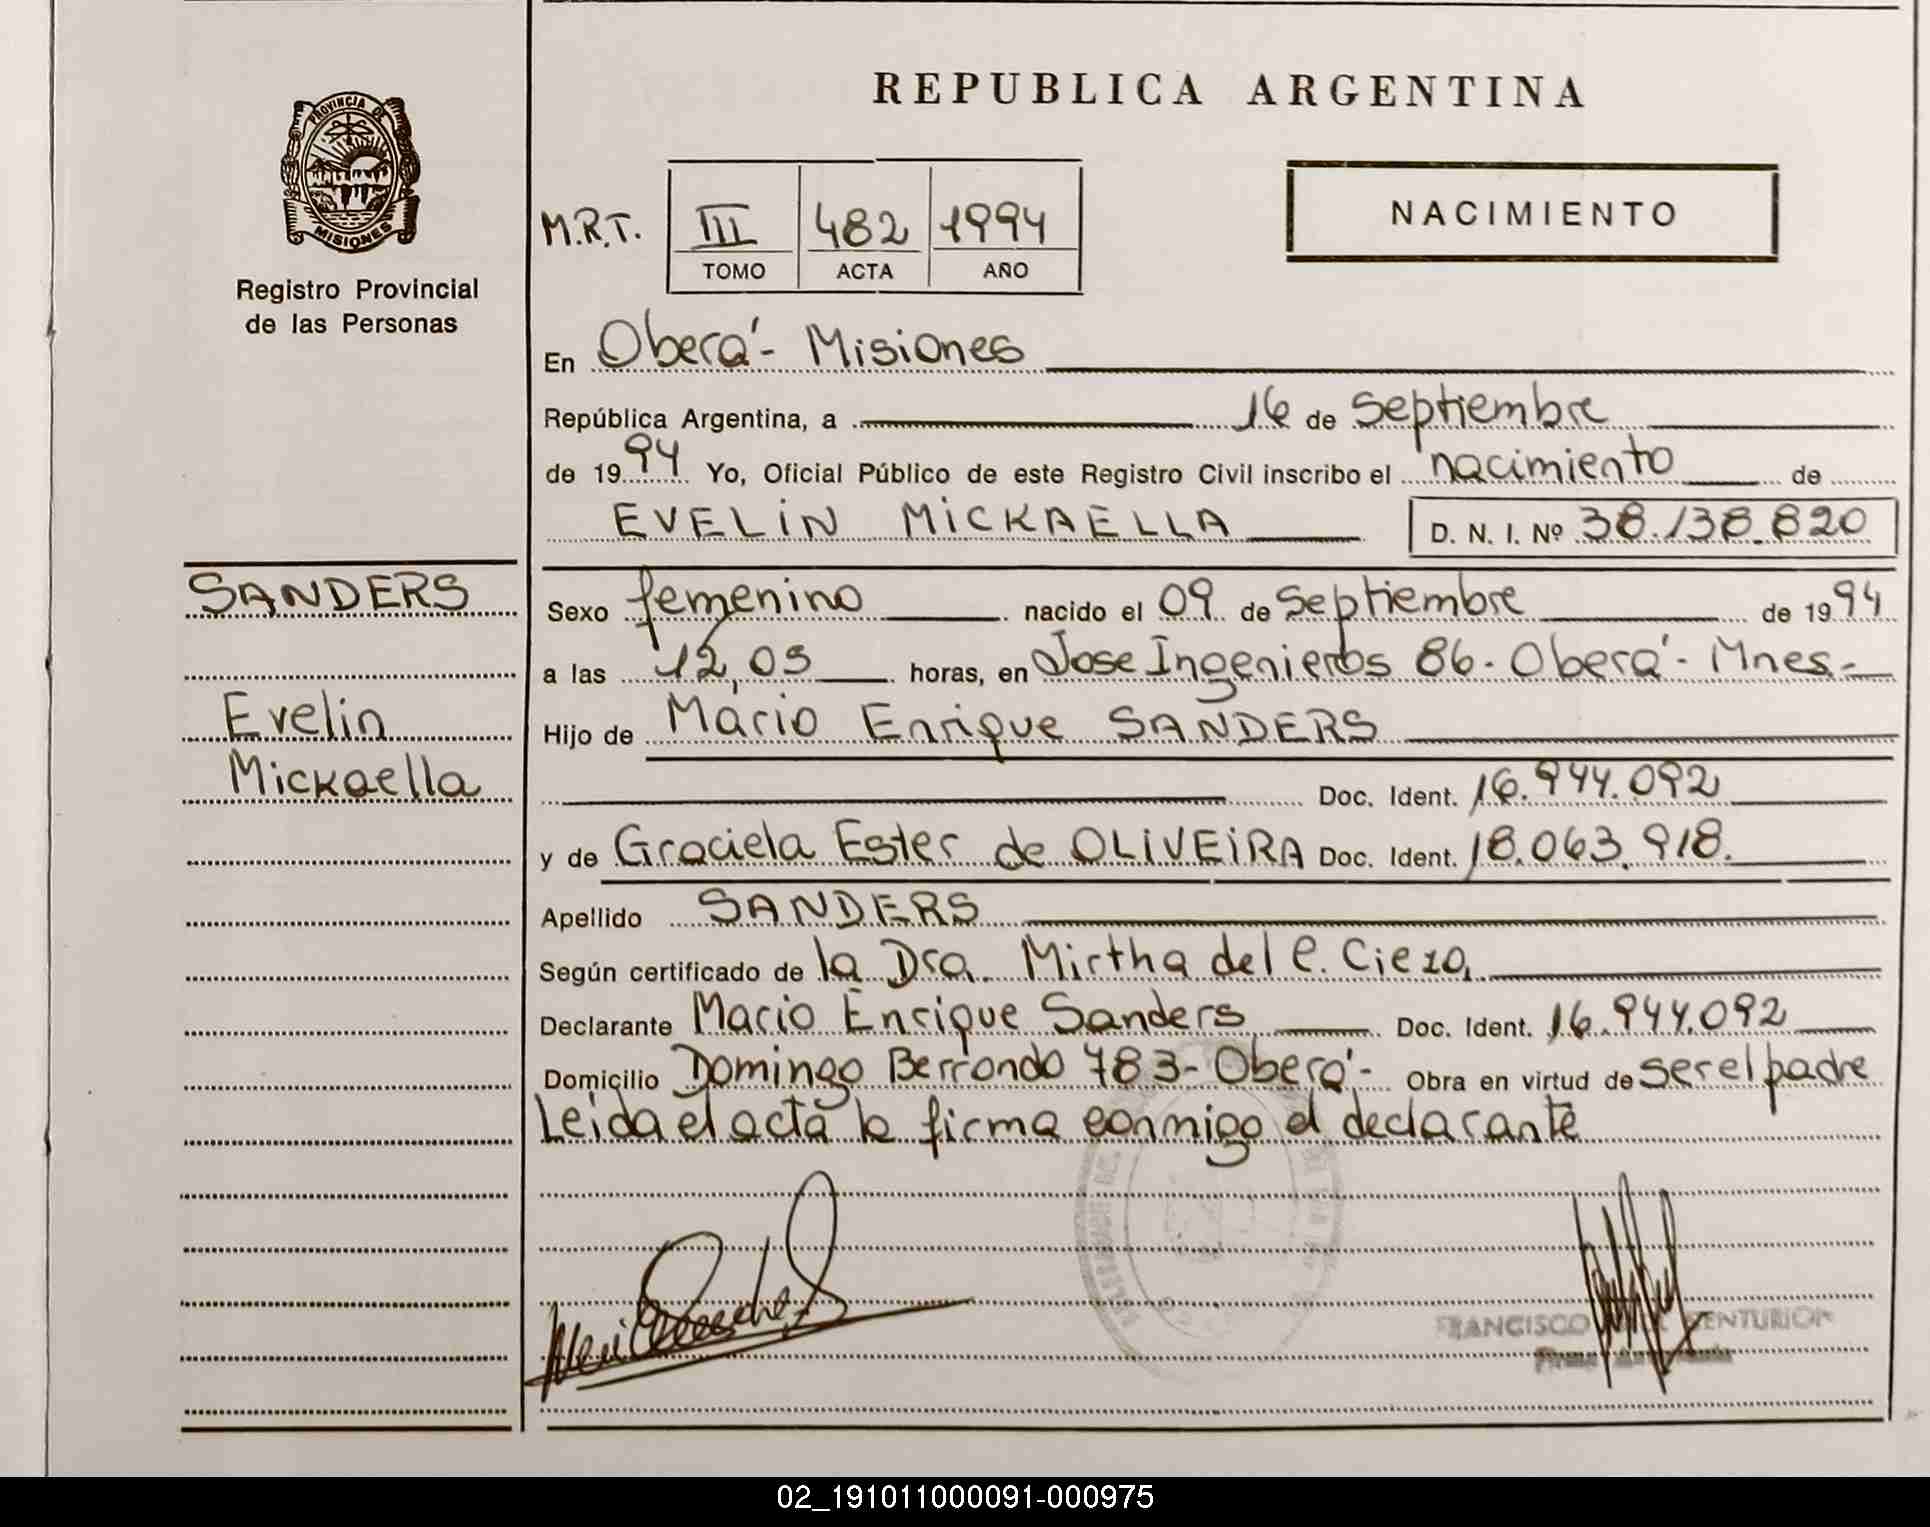 REPUBLICA ARGENTINA
PROVINCIA DE
MISIONES
Registro Provincial
de las Personas
M.R.T. III 482 1994
TOMO ACTA AÑO
NACIMIENTO
En Oberá - Misiones
República Argentina, a 16 de septiembre
de 1994 Yo, Oficial Público de este Registro Civil inscribo el nacimiento de
EVELIN MICKAELLA D. N. I. Nº 38.138.820
SANDERS
Evelin
Mickaella
Sexo femenino nacido el 09 de septiembre de 1994
a las 12,05 horas, en Jose Ingenieros 86 - Oberá - Mnes.-
Hijo de Mario Enrique SANDERS
Doc. Ident. 16.944.092
y de Graciela Ester de OLIVEIRA Doc. Ident. 18.063.918.
Apellido SANDERS
Según certificado de la Dra. Mirtha del C. Cieza,
Declarante Mario Enrique Sanders Doc. Ident. 16.944.092
Domicilio Domingo Berrondo 783 - Oberá - Obra en virtud de ser el padre
Leida el acta la firma conmigo el declarante
FRANCISCO CENTURION
02_191011000091-000975